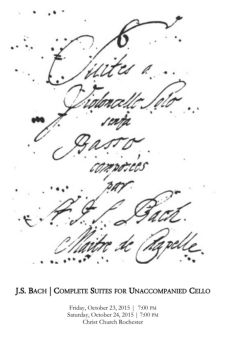 6
Suites a
Violoncello Solo
senza
Basso
composées
par
J. S. Bach.
Maitre de Capelle.
J.S. BACH | COMPLETE SUITES FOR UNACCOMPANIED CELLO
Friday, October 23, 2015 | 7:00 PM
Saturday, October 24, 2015 | 7:00 PM
Christ Church Rochester